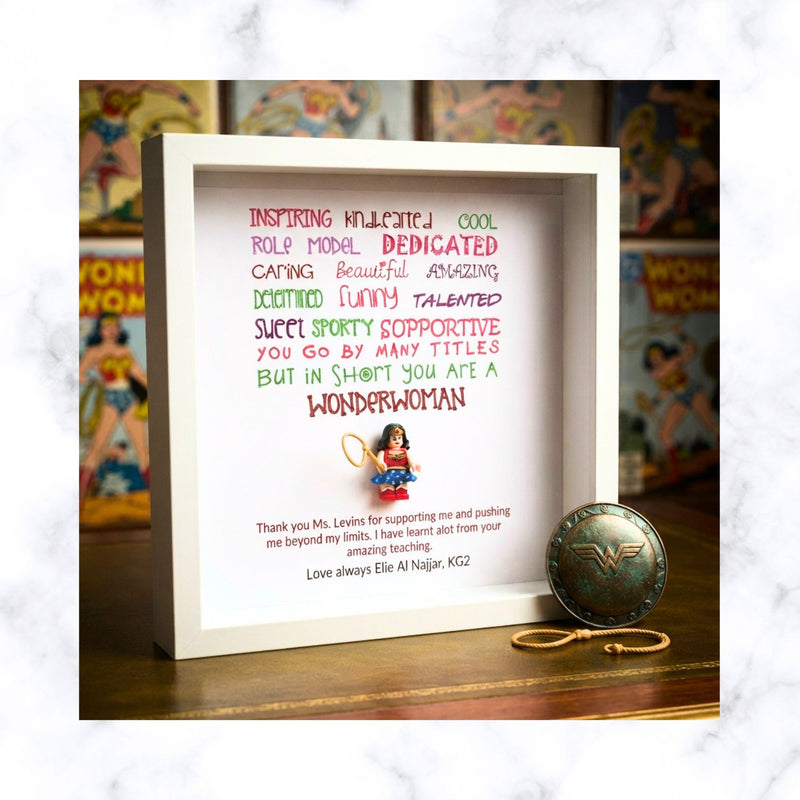 INSPIRING kindhearted COOL
ROLE MODEL DEDICATED
CARING Beautiful AMAZING
Determined funny TALENTED
Sweet SPORTY SOPPORTIVE
YOU GO BY MANY TITLES
BUT iN SHORT YOU ARE A
WONDERWOMAN
Thank you Ms. Levins for supporting me and pushing
me beyond my limits. I have learnt alot from your
amazing teaching.
Love always Elie Al Najjar, KG2
WON
WOM
WON
WOM
W